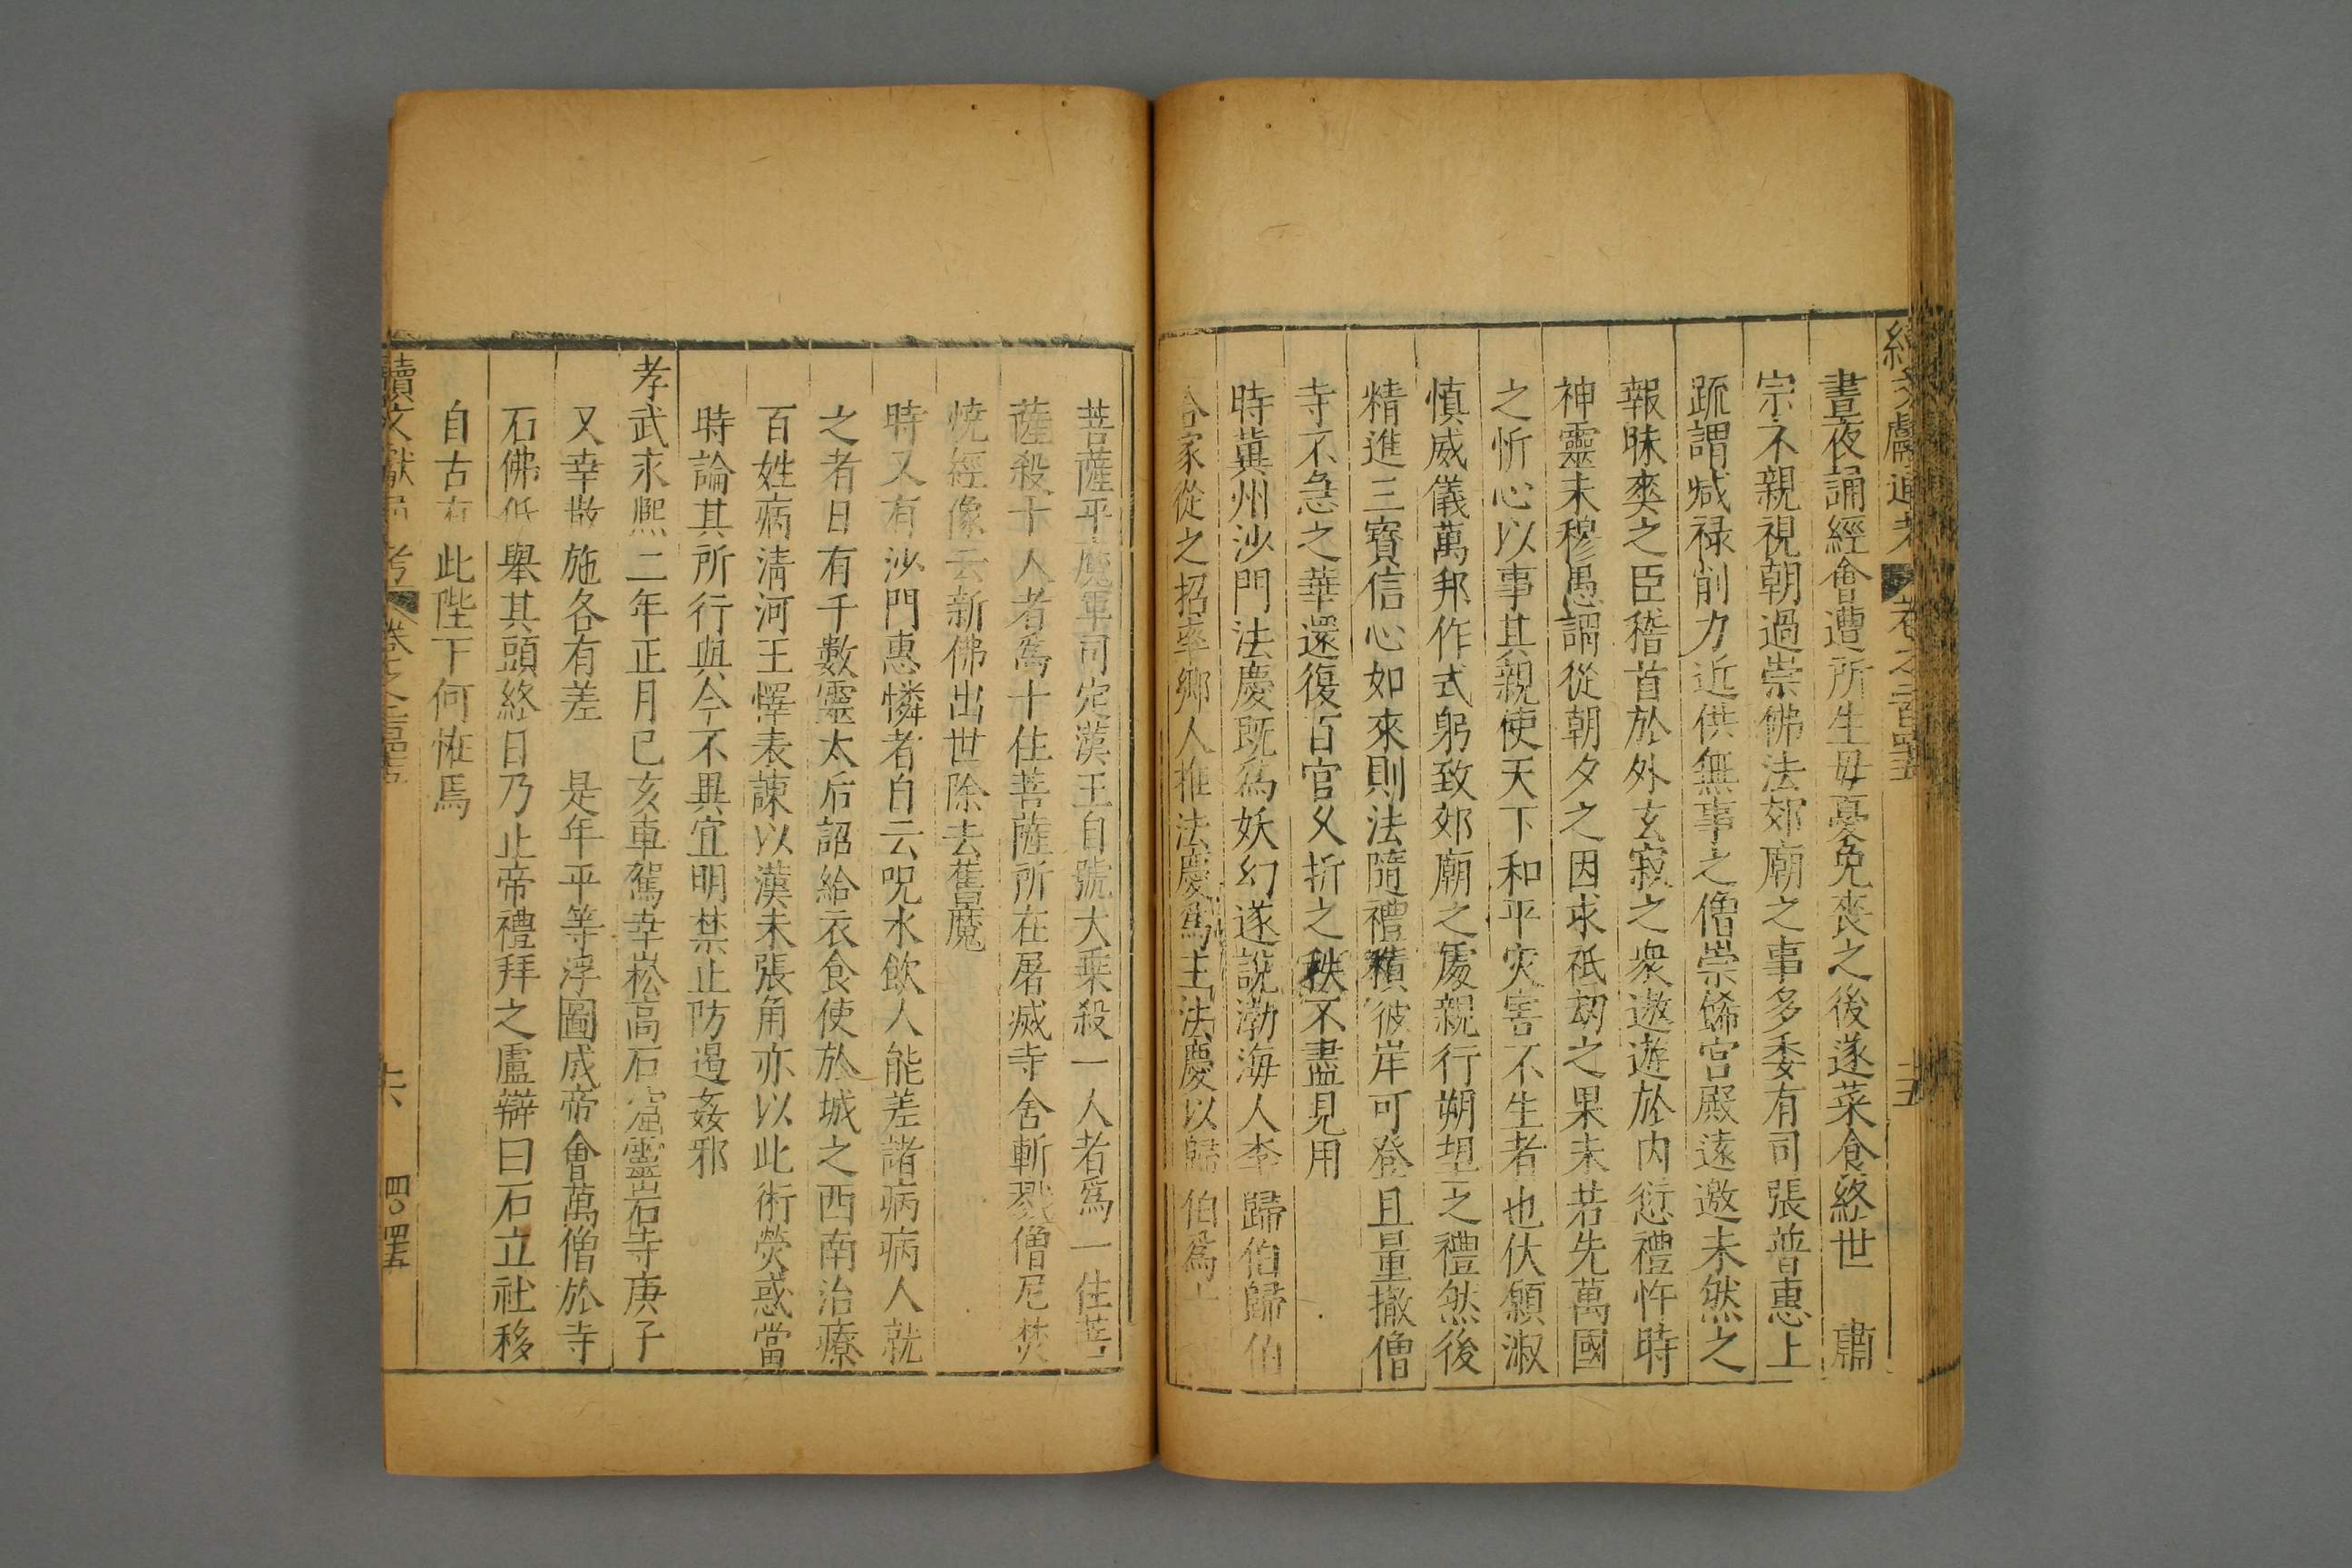 晝夜誦經會遭所生母憂免喪之後遂菜食終世 肅
宗不親視朝過崇佛法郊廟之事多委有司張普惠上
䟽謂减禄削力近供無事之僧崇餙宫殿遠邀未然之
報昧爽之臣稽首於外玄寂之衆遨遊於内愆禮忤時
神靈未穆愚謂從朝夕之因求祇刼之果未若先萬國
之忻心以事其親使天下和平灾害不生者也伏願淑
慎威儀萬邦作式躬致郊廟之䖍親行朔望之禮然後
精進三寳信心如來則法隨禮積彼岸可登且量撤僧
寺不急之華還復百官乆折之秩不盡見用
時冀州沙門法慶既爲妖幻遂說渤海人李歸伯歸伯
合家從之招率鄉人推法慶爲主法慶以歸伯爲十
菩薩平魔軍司定漢王自號大乗殺一人者爲一住菩
薩殺十人者爲十住菩薩所在屠滅寺舍斬戮僧尼焚
燒經像云新佛出世除去舊魔
時又有沙門惠憐者自云呪水飲人能差諸病病人就
之者日有千數靈太后詔給衣食使於城之西南治療
百姓病清河王懌表諫以漢末張角亦以此術熒惑當
時論其所行與今不異宜明禁止防遏姦邪
孝武永熈二年正月己亥車駕幸崧高石窟靈岩寺庚子
又幸散施各有差 是年平等浮圖成帝會萬僧於寺
石佛低舉其頭終日乃止帝禮拜之盧辯曰石立社移
自古有此陛下何恠焉
續文獻通考 卷之二百四十五
十六 四〇四五